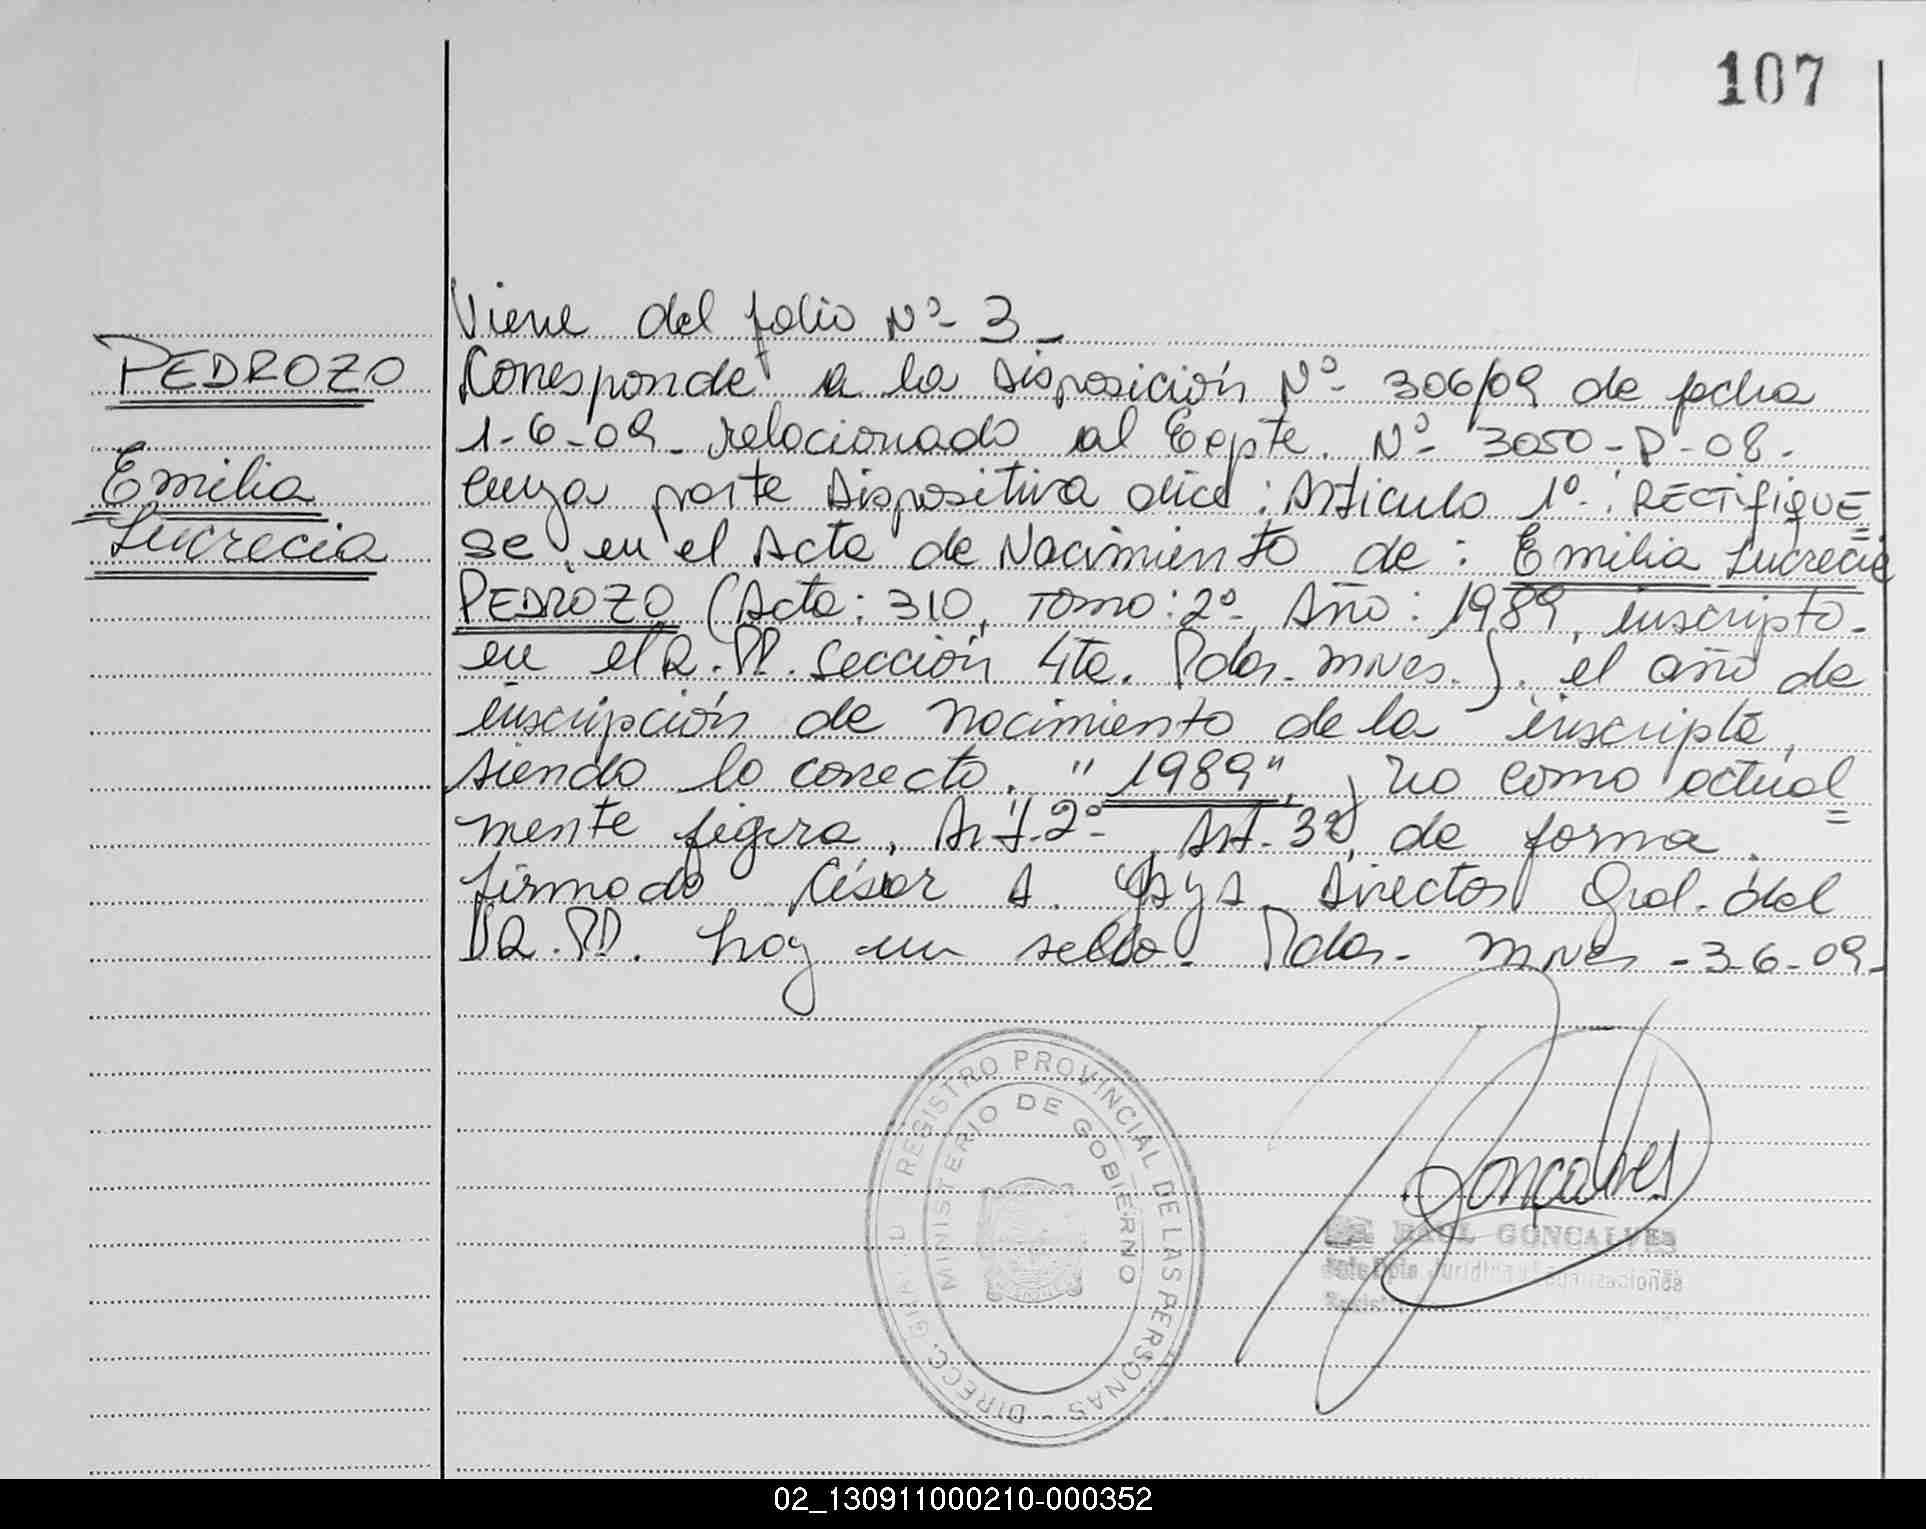 107
Viene del folio Nº- 3_
PEDROZO
Corresponde a la Disposición Nº- 306/09 de fecha
1-6-09_ relacionado al Expte. Nº- 3050-P-08-
Emilia
cuya parte Dispositiva dice: Articulo 1º-: RECTIFIQUE=
Lucrecia
se en el Acta de Nacimiento de: Emilia Lucrecia
PEDROZO (Acta: 310, Tomo: 2º- Año: 1989, inscripto-
en el R.PP. Sección 4ta. Pdas. Mnes.). el año de
inscripción de nacimiento de la inscripta,
siendo lo correcto. "1989", y no como actual=
mente figura. Art.2º- Art.3º, de forma.
firmado César A. Director Gral. del
R.PP. hay un sello- Pdas- Mnes -3-6-09-
DIRECC. GRAL. D REGISTRO PROVINCIAL DE LAS PERSONAS -
MINISTERIO DE GOBIERNO
Goncalves
RAUL GONCALVES
02_130911000210-000352